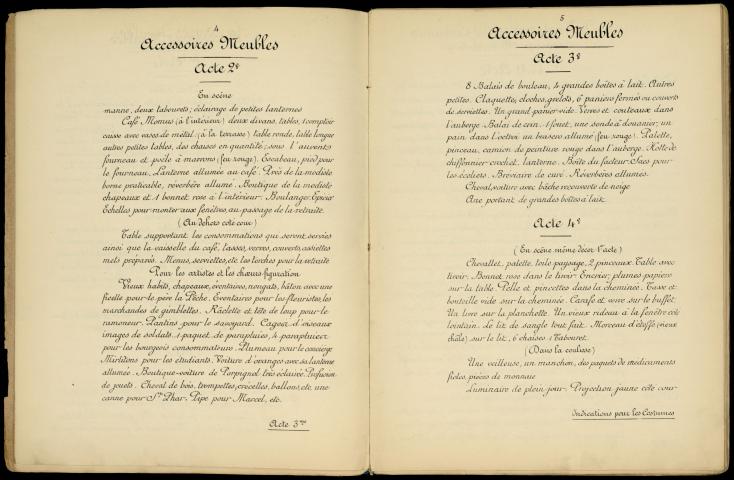 4
Accessoires Meubles
Acte 2e
En scène
manne, deux tabourets; éclairage de petites lanternes
Café Momus (à l'intérieur) deux divans, tables, 1 comptoir
caisse avec vases de métal. (à la terrasse) table ronde, table longue
autres petites tables, des chaises en quantité; sous l'auvent
fourneau et poële à marrons (feu rouge). Escabeau, pied pour
le fourneau. Lanterne allumée au café. Près de la modiste
borne praticable, réverbère allumé. Boutique de la modiste
chapeaux et 1 bonnet rose à l'intérieur. Boulanger. Epicier
Echelles pour monter aux fenêtres, au passage de la retraite.
(Au dehors coté cour)
Table supportant les consommations qui seront servies
ainsi que la vaisselle du café, tasses, verres, couverts, assiettes
mets préparés. Menus, serviettes, etc les torches pour la retraite
Pour les artistes et les chœurs-figuration
Vieux habits, chapeaux, éventaires, nougats, bâton avec une
ficelle pour le père la Pêche. Eventaires pour les fleuristes, les
marchandes de gimblettes. Râclette et tête de loup pour le
ramoneur. Pantins pour le savoyard. Cages d'oiseaux
images de soldats. 1 paquet de parapluies, 4 parapluies
pour les bourgeois consommateurs. Plumeau pour le concierge
Mirlitons pour les étudiants. Voiture d'oranges avec sa lanterne
allumée. Boutique-voiture de Parpignol très éclairée. Profusion
de jouets. Cheval de bois, trompettes, crécelles, ballons, etc. une
canne pour St Phar. Pipe pour Marcel, etc.
Acte 3me
5
Accessoires Meubles
Acte 3e
8 Balais de bouleau, 4 grandes boîtes à lait. Autres
petites. Claquettes, cloches, grelots, 6 paniers fermés ou couverts
de serviettes. Un grand panier vide. Verres et couteaux dans
l'auberge. Balai de crin. 1 fouet, une sonde à douanier; un
pain dans l'octroi un brasero allumé (feu rouge). Palette,
pinceau, camion de peinture rouge dans l'auberge. Hotte de
chiffonnier crochet, lanterne. Boîte du facteur Sacs pour
les écoliers. Bréviaire de curé. Réverbères allumés.
Cheval, voiture avec bâche recouverte de neige
Ane portant de grandes boîtes à lait.
Acte 4e
(En scène même décor 1er acte)
Chevallet, palette, toile paysage, 2 pinceaux. Table avec
tiroir. Bonnet rose dans le tiroir. Encrier, plumes papiers
sur la table. Pelle et pincettes dans la cheminée. Tasse et
bouteille vide sur la cheminée. Carafe et verre sur le buffet.
Un livre sur la planchette. Un vieux rideau à la fenêtre côté
lointain. Le lit de sangle tout fait. Morceau d'étoffe (vieux
châle) sur le lit, 6 chaises 1 Tabouret.
(Dans la coulisse)
Une veilleuse, un manchon, des paquets de médicaments
fioles, pièces de monnaie
Luminaire de plein jour. Projection jaune côté cour
Indications pour les Costumes